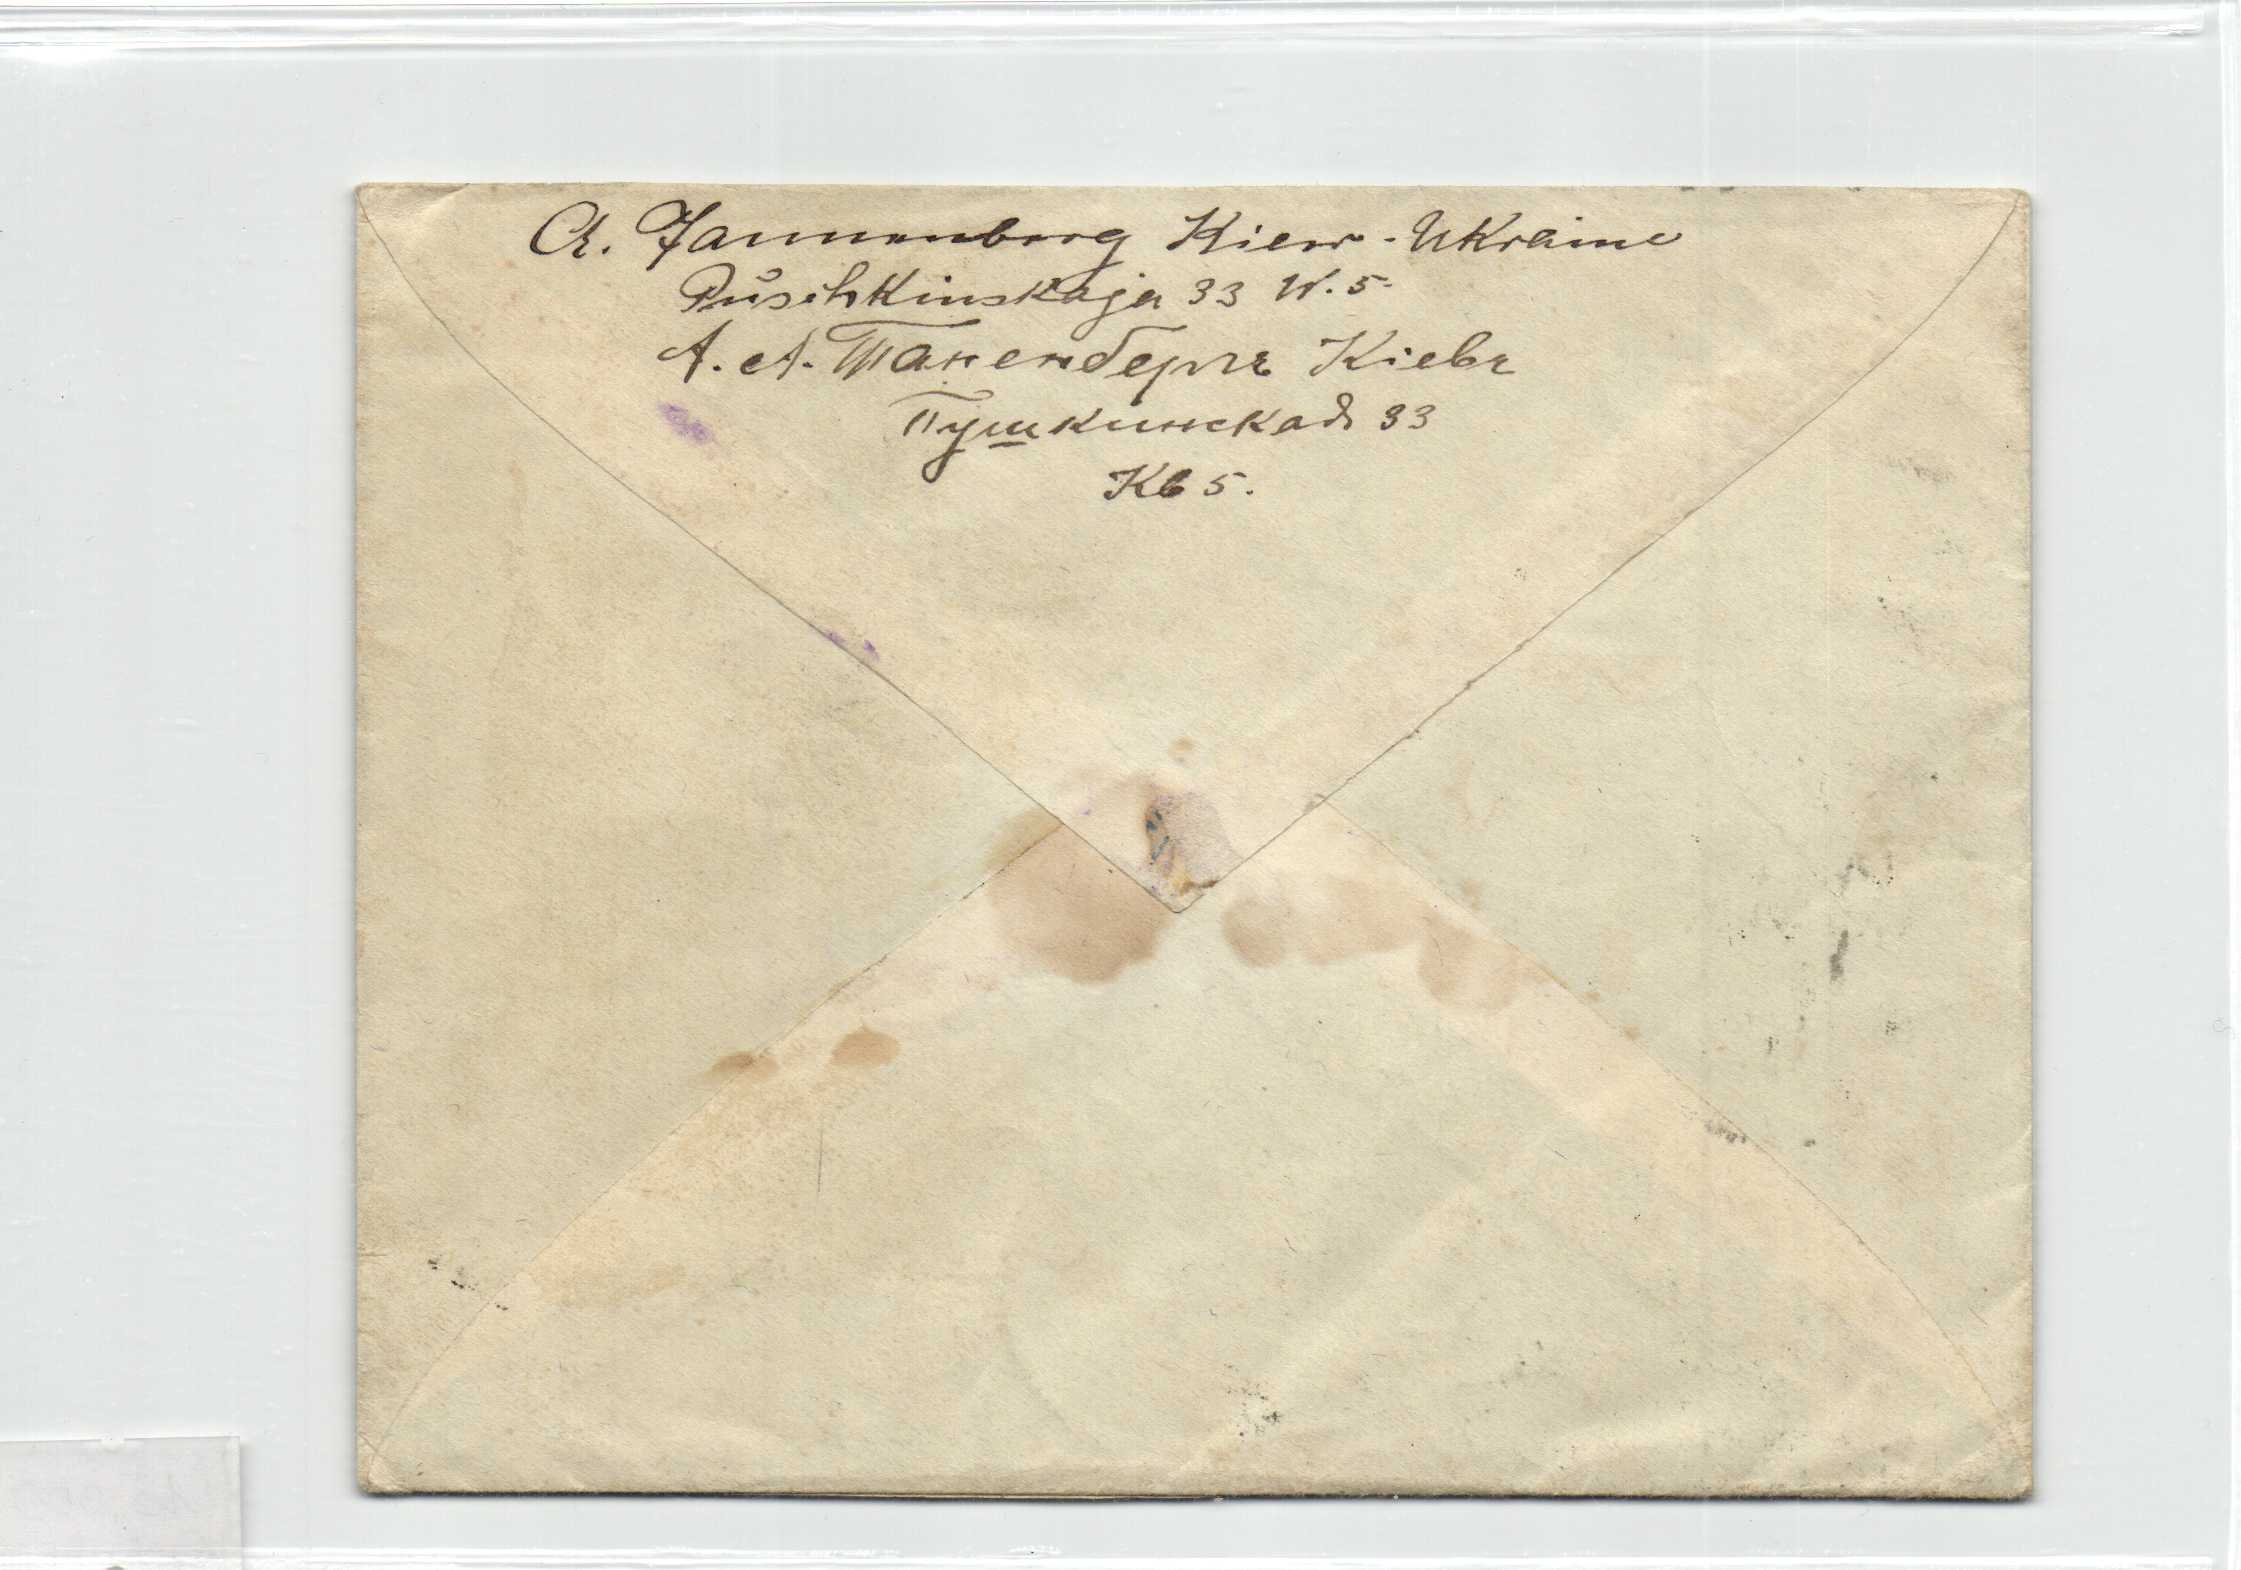 A. Tannenberg Kiew - Ukraine
Puschkinskaja 33 W. 5.
А. А. Таненбергъ Кіевъ
Пушкинская 33
Кв 5.